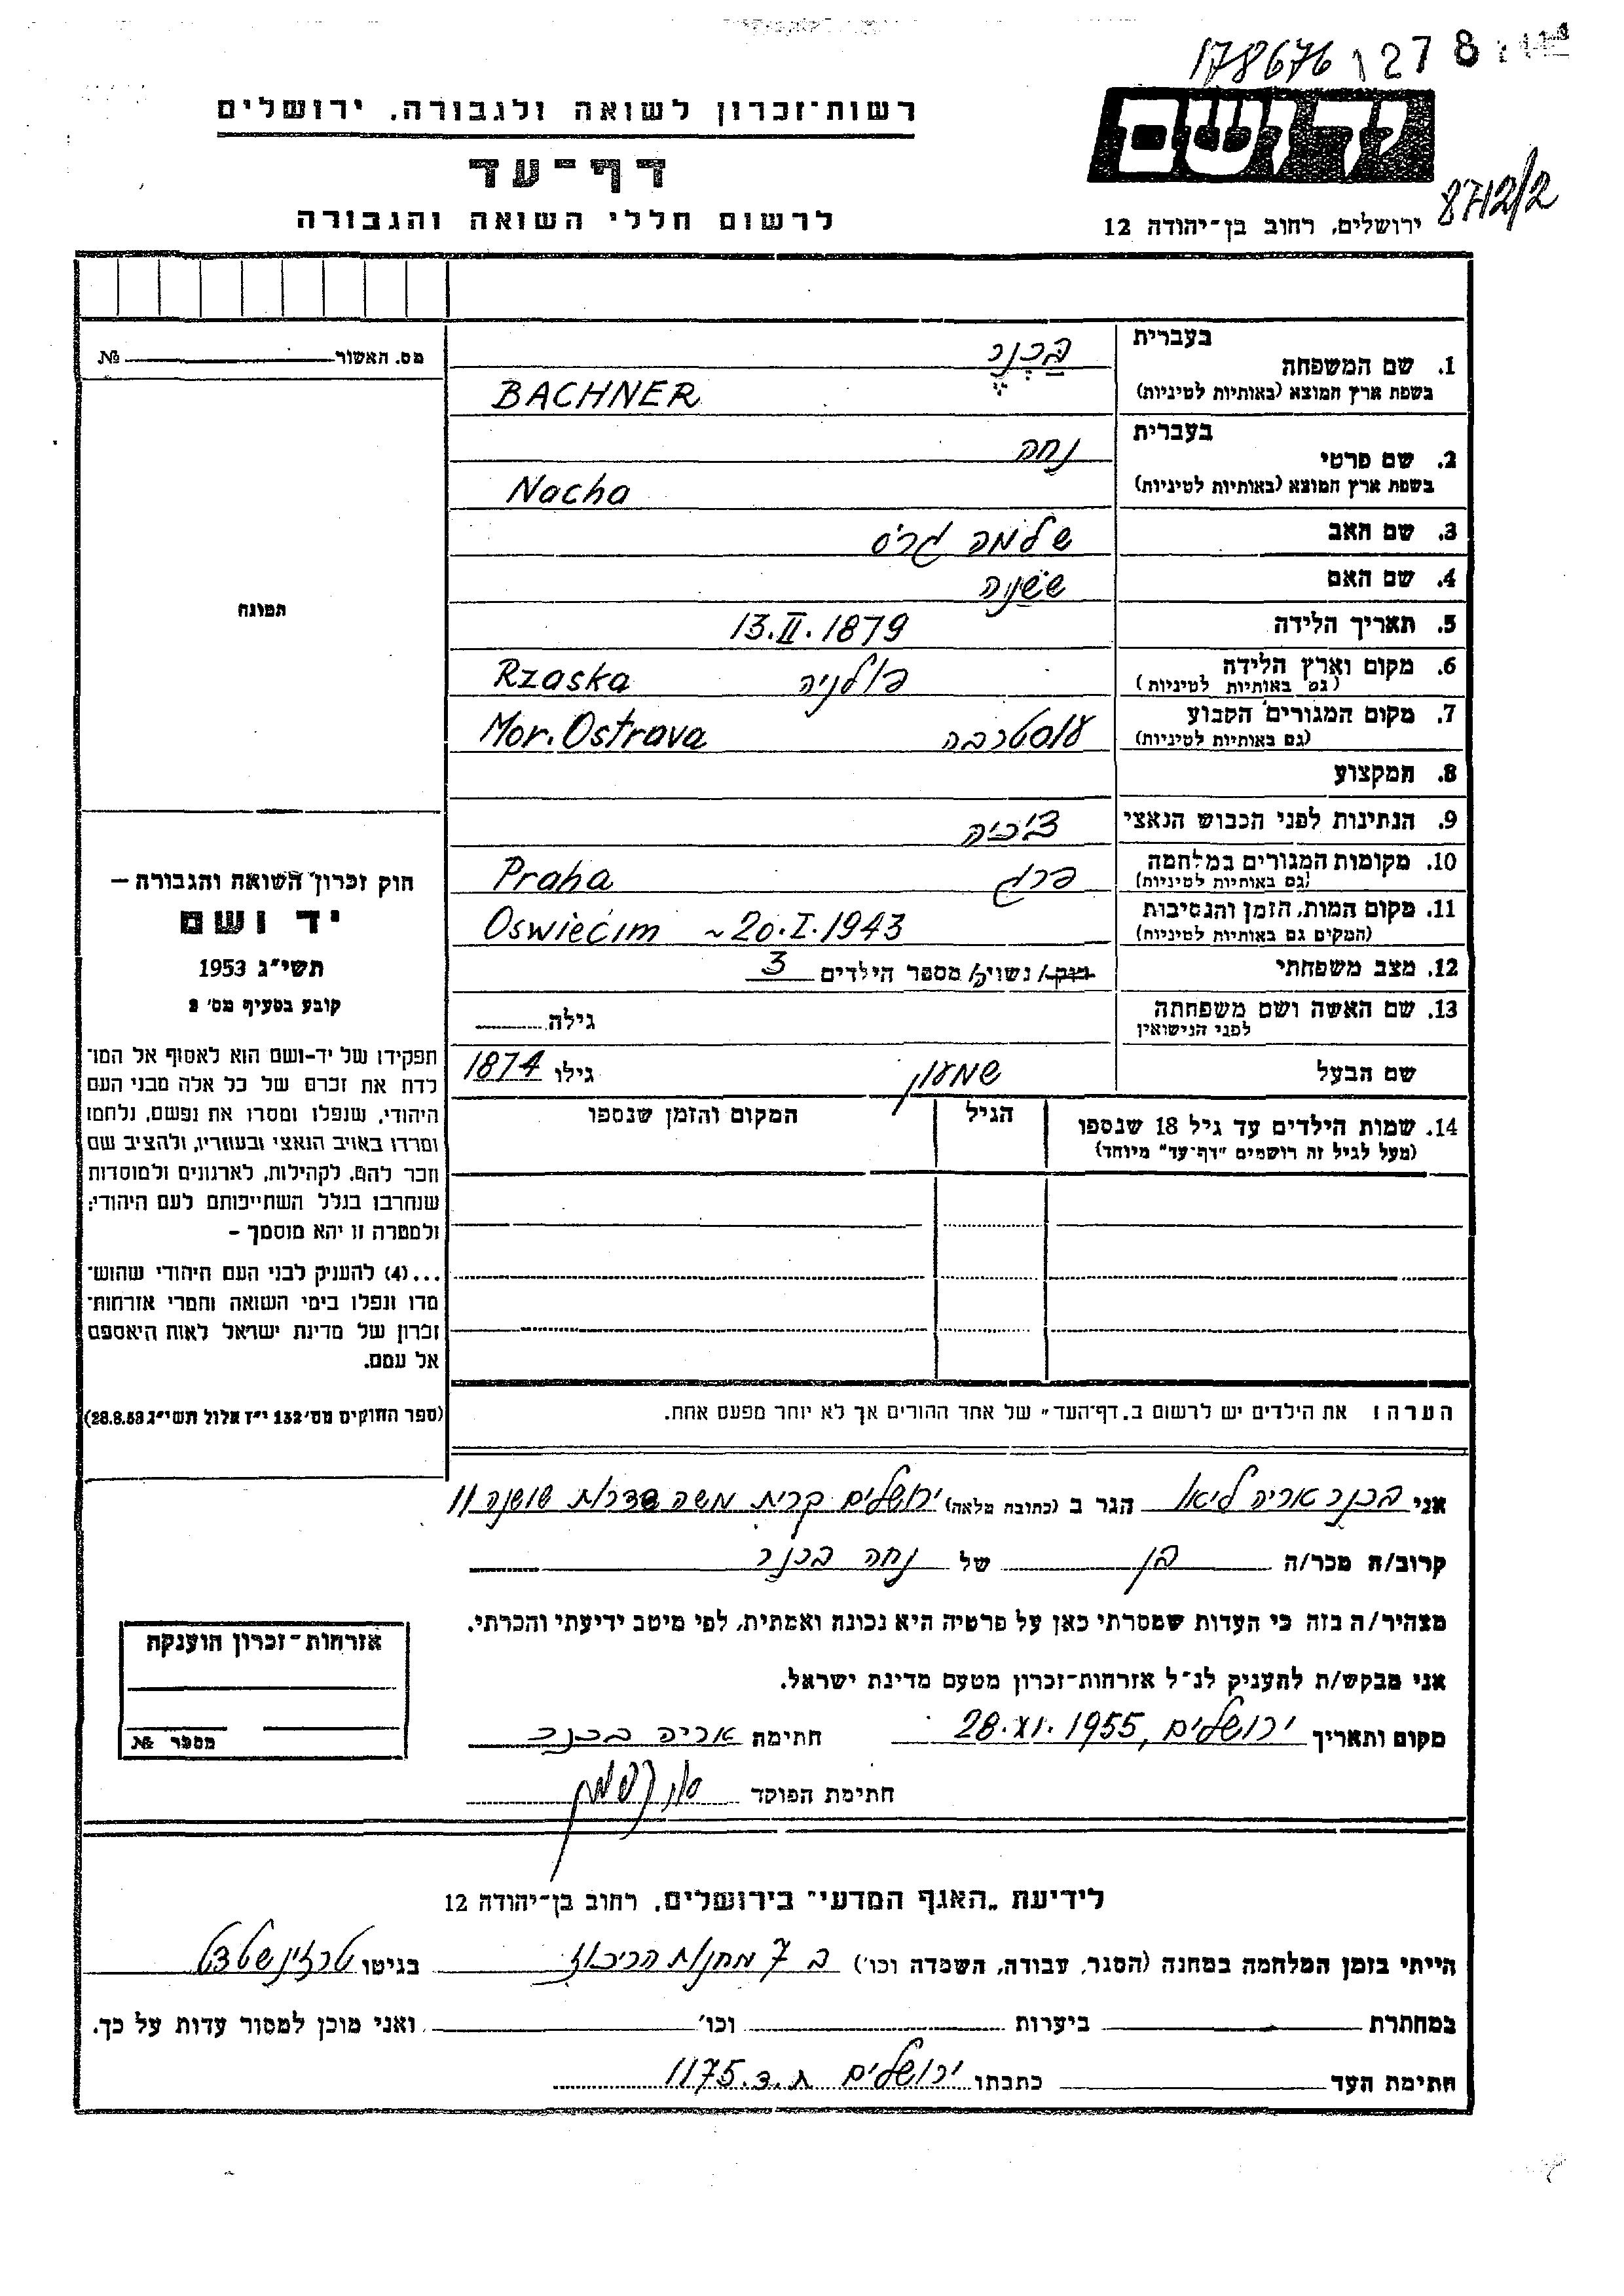 178676 1278
רשות־זכרון לשואה ולגבורה. ירושלים
דף־עד
לרשום חללי השואה והגבורה
ידושם
ירושלים, רחוב בן־יהודה 12
8712/2
מס. האשור № 
בעברית
1. שם המשפחה בַּכְנֶר
בשפת ארץ המוצא (באותיות לטיניות) BACHNER
בעברית
2. שם פרטי נחה
בשפת ארץ המוצא (באותיות לטיניות) Nacha
3. שם האב שלמה גרוס
4. שם האם
5. תאריך הלידה 13.II.1879
6. מקום וארץ הלידה פולניה Rzaska
(גם באותיות לטיניות)
7. מקום המגורים הקבוע Mor. Ostrava
(גם באותיות לטיניות)
8. המקצוע
9. הנתינות לפני הכבוש הנאצי צ'כיה
10. מקומות המגורים במלחמה פרג Praha
(גם באותיות לטיניות)
11. מקום המות, הזמן והנסיבות Oswiećim ~20.I.1943
(המקום גם באותיות לטיניות)
12. מצב משפחתי רוק/ נשוי/ מספר הילדים 3
13. שם האשה ושם משפחתה גילה
לפני הנישואין
שם הבעל שמעון גילו 1874
14. שמות הילדים עד גיל 18 שנספו הגיל המקום והזמן שנספו
(מעל לגיל זה רושמים "דף־עד" מיוחד)
הערה: את הילדים יש לרשום ב„דף־העד" של אחד ההורים אך לא יותר מפעם אחת.
התמונה
חוק זכרון השואה והגבורה –
יד ושם
תשי"ג 1953
קובע בסעיף מס' 2
תפקידו של יד-ושם הוא לאסוף אל המו־
לדת את זכרם של כל אלה מבני העם
היהודי, שנפלו ומסרו את נפשם, נלחמו
ומרדו באויב הנאצי ובעוזריו, ולהציב שם
וזכר להם, לקהילות, לארגונים ולמוסדות
שנחרבו בגלל השתייכותם לעם היהודי;
ולמטרה זו יהא מוסמך –
...(4) להעניק לבני העם היהודי שהוש־
מדו ונפלו בימי השואה והמרי אזרחות־
זכרון של מדינת ישראל לאות היאספם
אל עמם.
(ספר החוקים מס' 132 י"ז אלול תשי"ג 28.8.53)
אני בכנר אריה ליאו הגר ב (כתובת מלאה) ירושלים קרית משה שדרות שושנה 11
קרוב/ה מכר/ה בן של נחה בכנר
מצהיר/ה בזה כי העדות שמסרתי כאן על פרטיה היא נכונה ואמתית, לפי מיטב ידיעתי והכרתי.
אני מבקש/ת להעניק לנ"ל אזרחות־זכרון מטעם מדינת ישראל.
מקום ותאריך ירושלים, 28.XI.1955 חתימת אריה בכנר
חתימת הפוקד
אזרחות־זכרון הוענקה
מספר №
לידיעת „האגף המדעי" בירושלים, רחוב בן־יהודה 12
הייתי בזמן המלחמה במחנה (הסגר, עבודה, השמדה וכו') ב 7 מחנות הריכוז בגיטו טרזינשטדט
במחתרת ביערות וכו' ואני מוכן למסור עדות על כך.
חתימת העד כתבתו ירושלים ת.ד. 1175